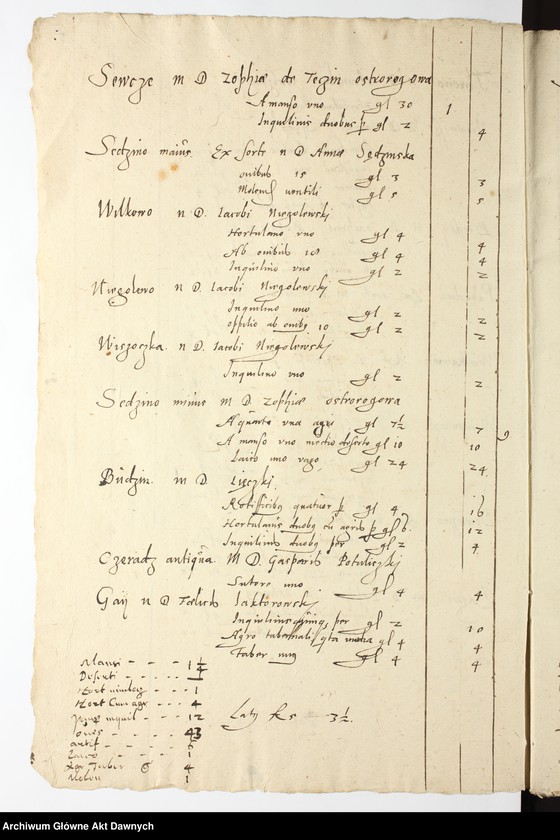 Sewcze m D Zophiæ de Teczin ostrorogowa
A manso uno gl 30 1
Inquilinis duobus p gl 2 4
Sędzino maius Ex sorte n D Annæ Sędzinska
ovibus 15 gl 3 3
Molend ventili gl 5 5
Wilkowo n D. Iacobi Niegolewskj
Hortulano uno gl 4 4
Ab ovibus 18 gl 4 4
Inquilino uno gl 2 2
Niegolewo n D. Iacobi Niegolewskj
Inquilino uno gl 2 2
opilio ab ovibq 10 gl 2 2
Wisoczka n D. Iacobi Niegolewskj
Inquilino uno gl 2 2
Sedzino minus m D Zophiæ ostrorogowa
A quarta una agri gl 7½ 7
A manso uno medio deserto gl 10 10
Laico uno vago gl 24 24
9
Budzin m D
Rotificibq quatuor p gl 4 16
Hortulanis duobq cu agris p gl 6 12
Inquilinis duobq per gl 2 4
Czeradz antiqua M D. Gasparis Potuliczkj
Sutore uno gl 4 4
Gaij n D Fœlicis Jaktorowskj
Inquilinis quinq per gl 2 10
Agro tabernali gl 4 4
Faber unq gl 4 4
Mansi - - - 1¼
Deserti - - -
Hort - 1
Hort Cum agr - - 4
inquil - - - 12
Laty fl s 3½
oues - - - 43
artif - - - 6
Laico - - - 1
Faber 4
Molen 1
Archiwum Główne Akt Dawnych